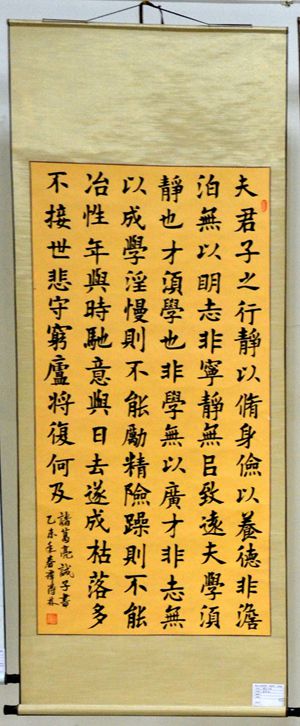 夫君子之行靜以脩身儉以養德非澹
泊無以明志非寧靜無㠯致遠夫學湏
靜也才湏學也非學無以廣才非志無
以成學淫慢則不能勵精險躁則不能
冶性年與時馳意與日去遂成枯落多
不接世悲守窮廬將復何及
諸葛亮誡子書
乙未年春